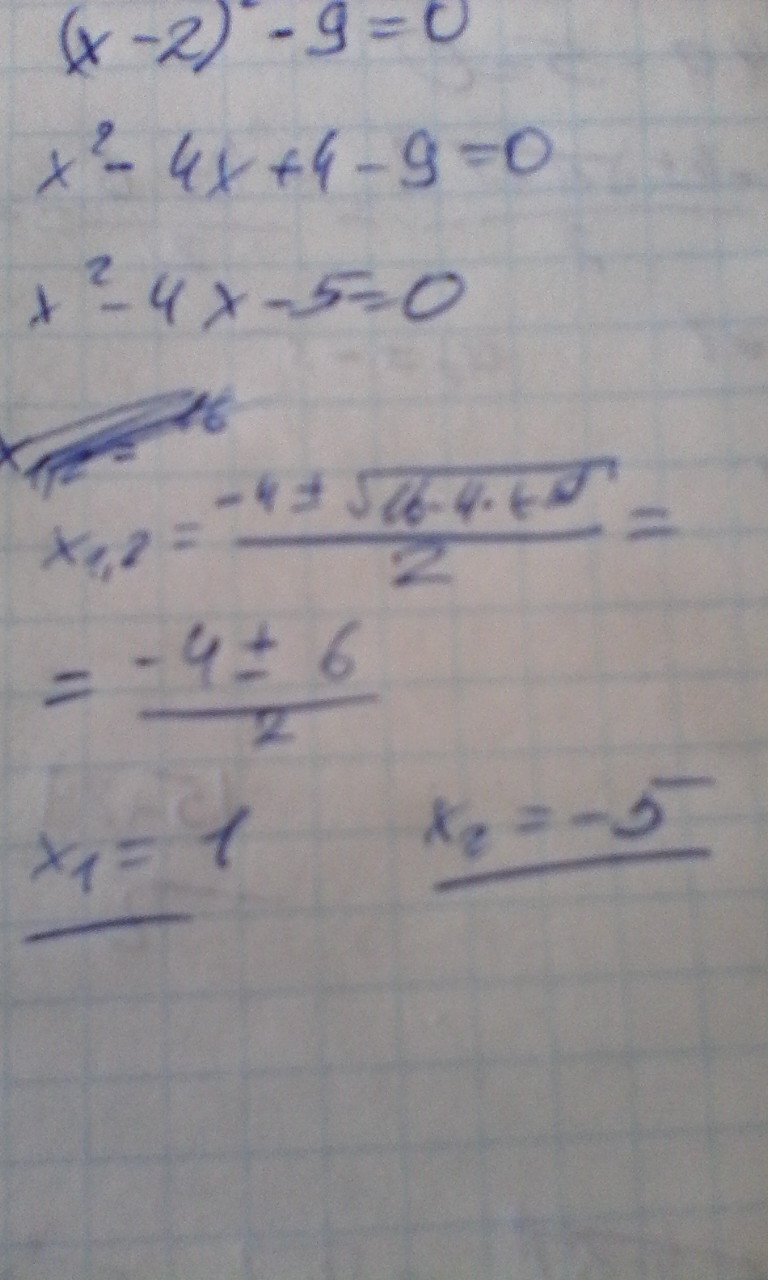 (x-2)² - 9 = 0
x² - 4x + 4 - 9 = 0
x² - 4x - 5 = 0
16
x₁,₂ = (-4 ± √(16 - 4 · )) / 2 =
= (-4 ± 6) / 2
x₁ = 1 x₂ = -5